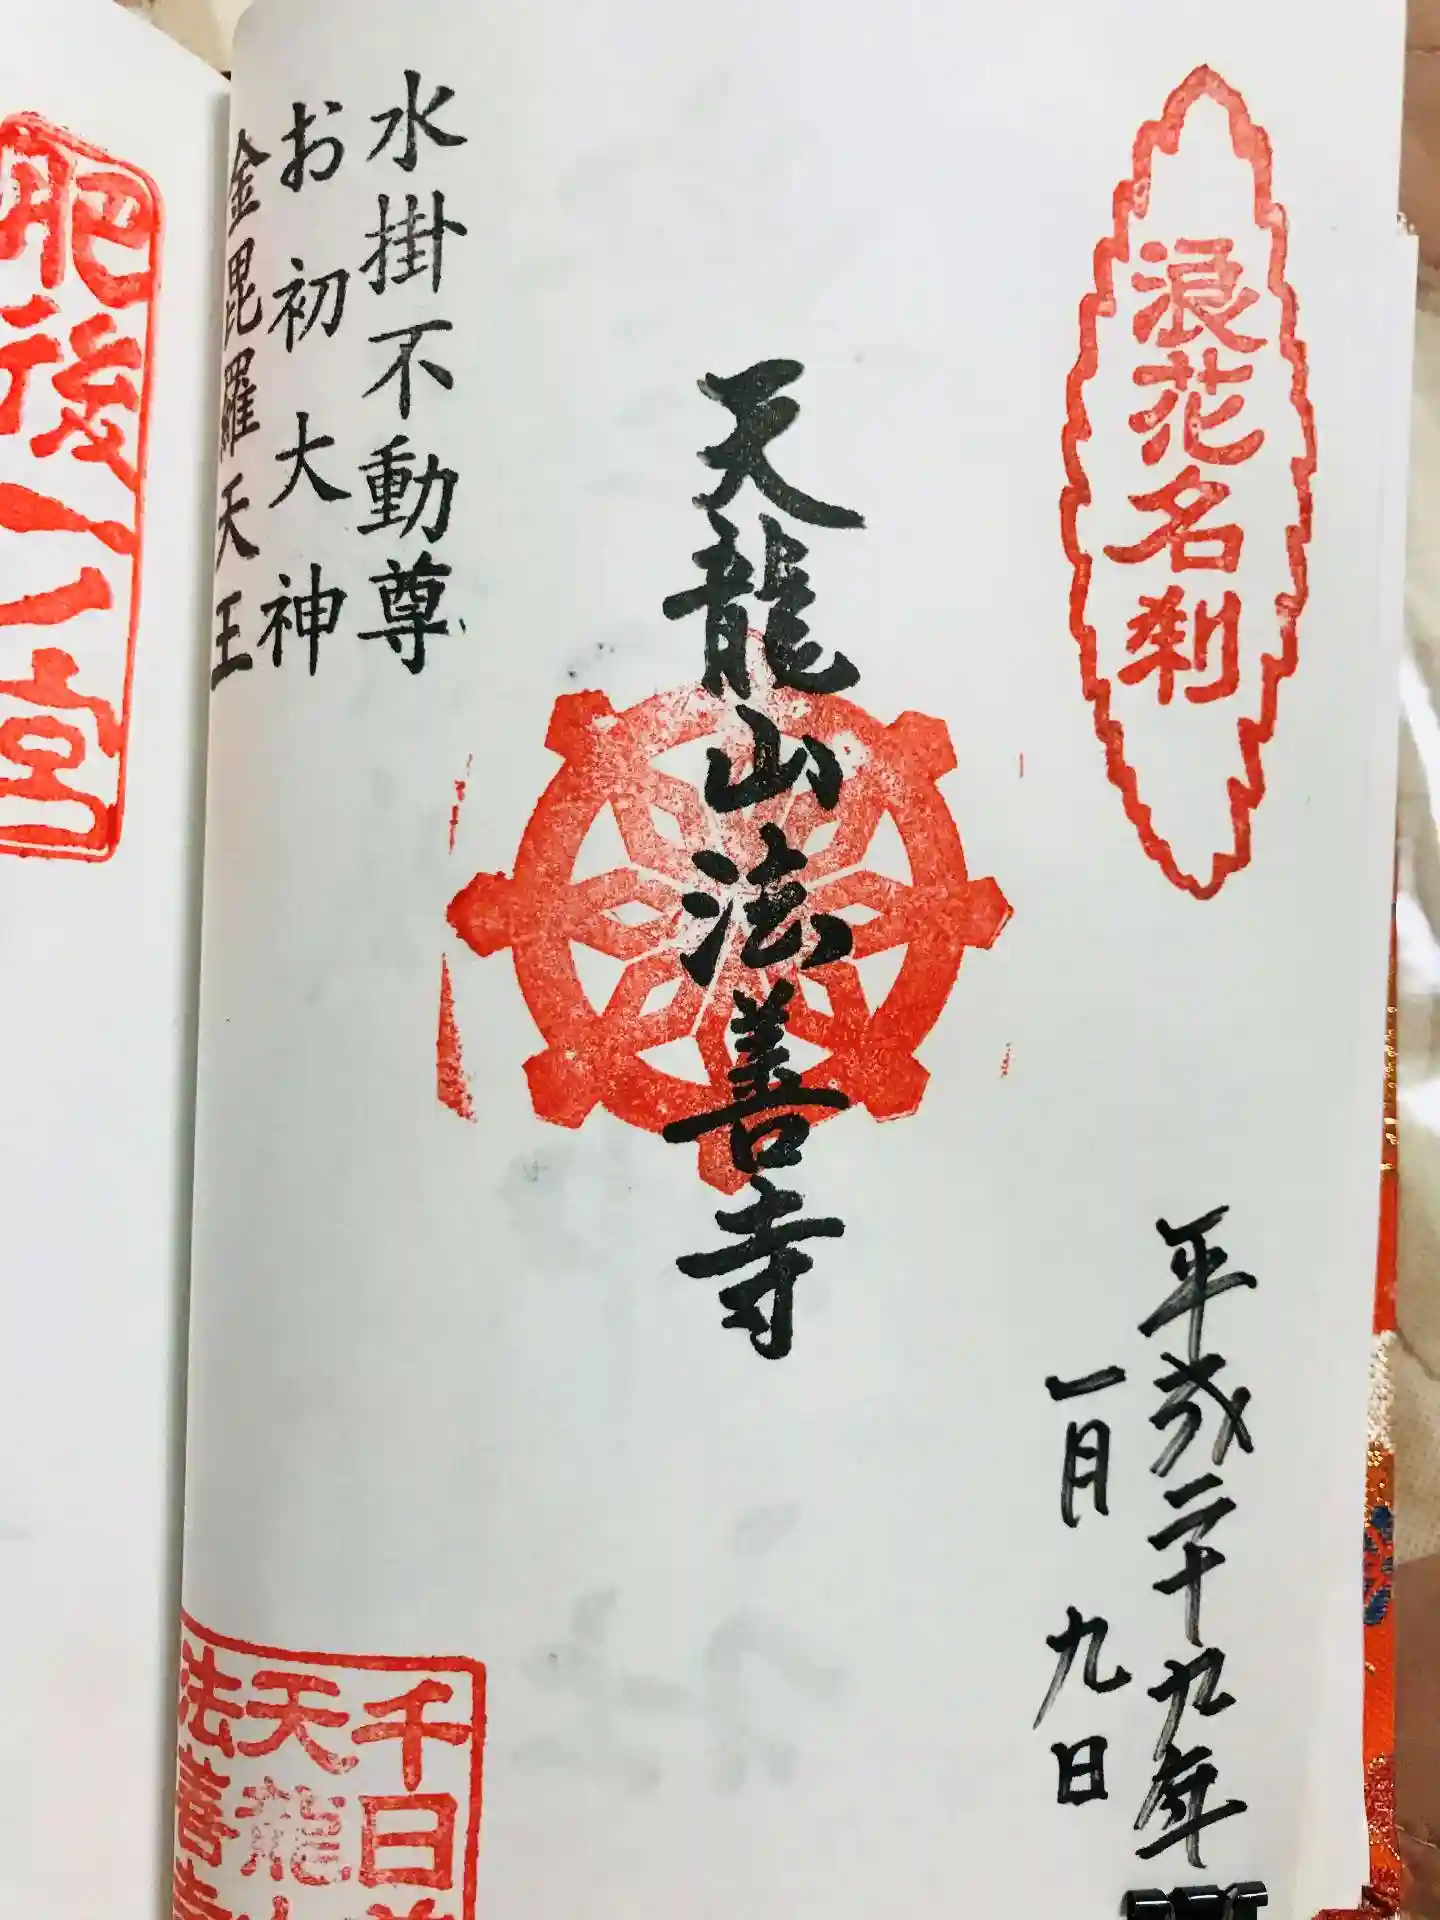 浪花名刹
平成二十九年
一月九日
天龍山法善寺
水掛不動尊
お初大神
金毘羅天王
千日前
天龍山
法善寺
肥後一ノ宮